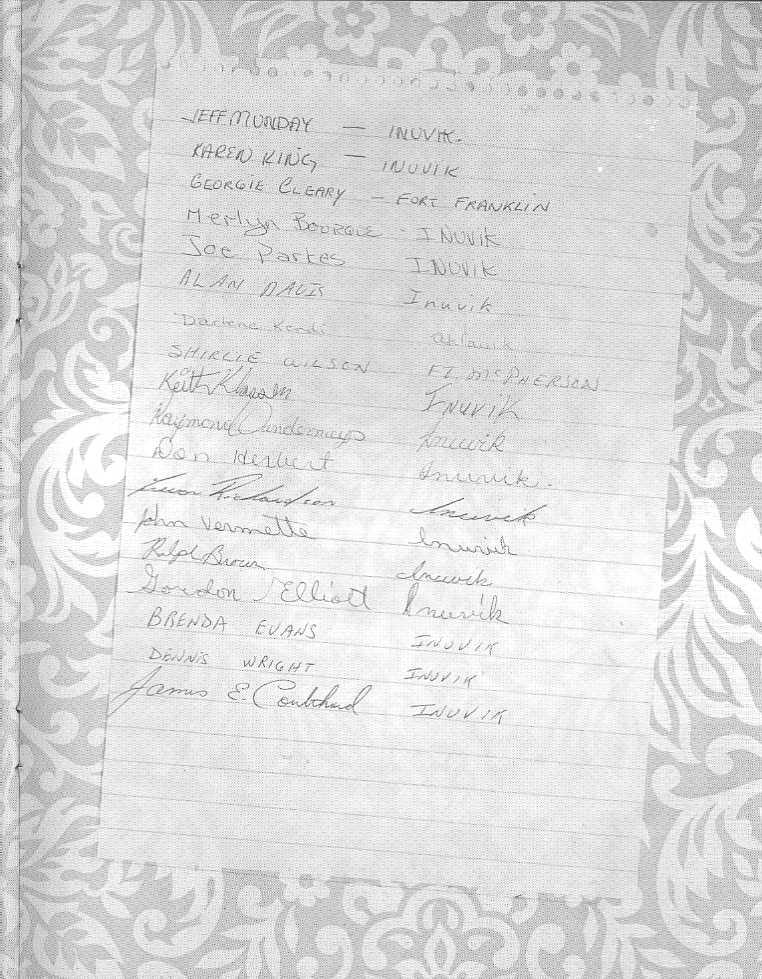 JEFF MUNDAY — INUVIK.
KAREN KING — INUVIK
GEORGIE CLEARY — FORT FRANKLIN
Merlyn BOURQUE - INUVIK
Joe Parkes INUVIK
ALAN DAVIS Inuvik
Darlene Kendi aklavik
SHIRLIE WILSON FT. McPHERSON
Keith Klassen INUVIK
Raymond Inuvik
Don Herbert Inuvik.
Richardson Inuvik
John Vermette Inuvik
Ralph Brown Inuvik
Gordon Elliott Inuvik
BRENDA EVANS INUVIK
DENNIS WRIGHT INUVIK
James E. INUVIK